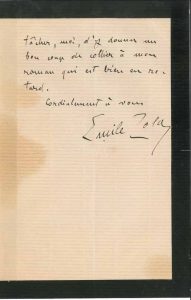 tâcher, moi, d'y donner un
bon coup de collier à mon
roman qui est bien en re-
tard.
Cordialement à vous
Emile Zola